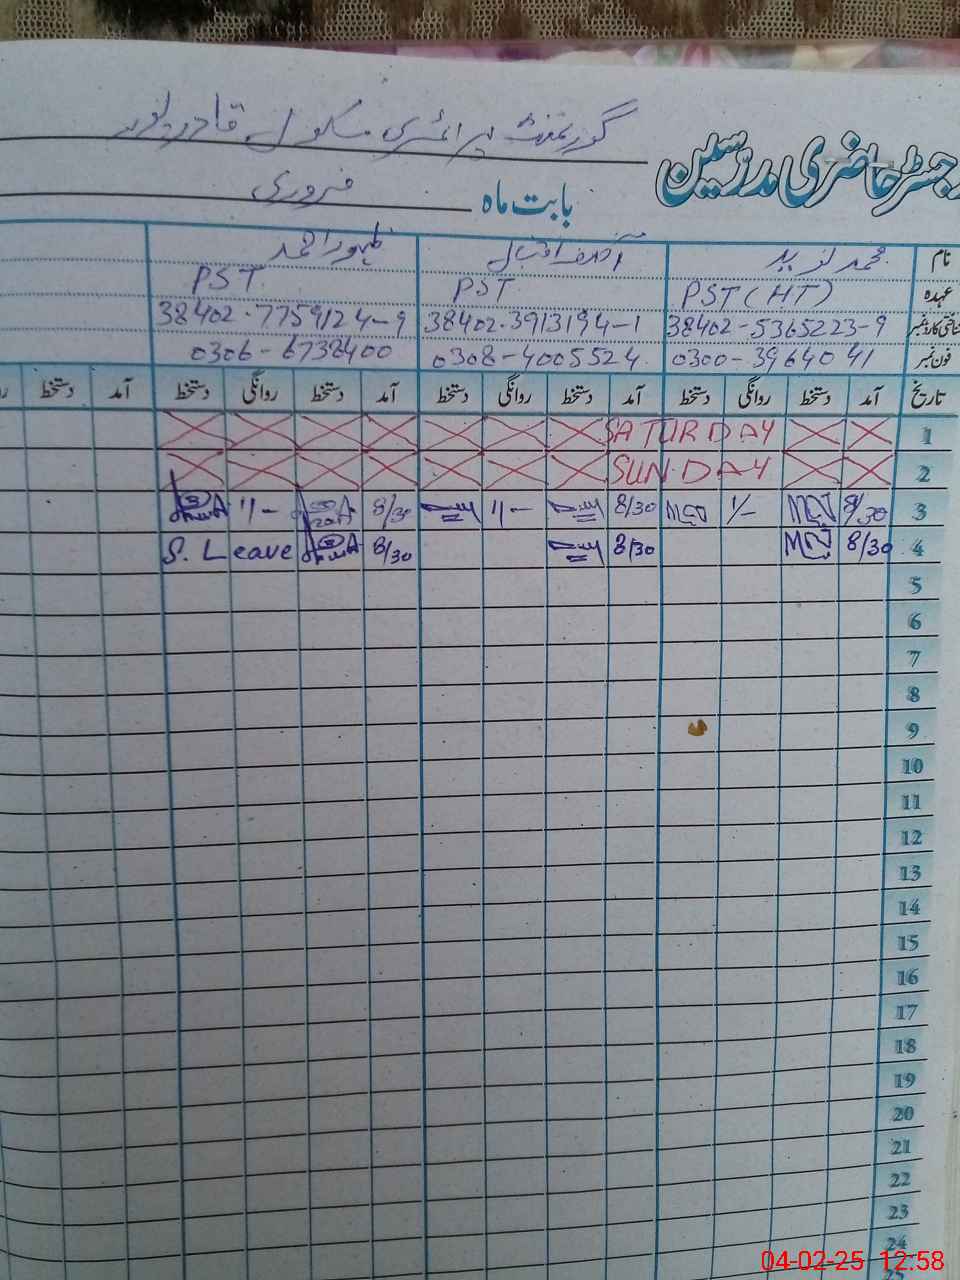 رجسٹر حاضری مدرسین گورنمنٹ پرائمری سکول قادر پور
بابت ماہ فروری
نام محمد نوید آصف اقبال ظہور احمد
عہدہ PST (HT) PST PST
شناختی کارڈ نمبر 38402-5365223-9 38402-3913194-1 38402-7759124-9
فون نمبر 0300-3964041 0308-4005524 0306-6738400
تاریخ آمد دستخط روانگی دستخط آمد دستخط روانگی دستخط آمد دستخط روانگی دستخط آمد دستخط
1 SATURDAY
2 SUNDAY
3 8/30 1/- 8/30 1/- 8/30 1/-
4 8/30 8/30 8/30 S. Leave
5
6
7
8
9
10
11
12
13
14
15
16
17
18
19
20
21
22
23
24
04-02-25 12:58